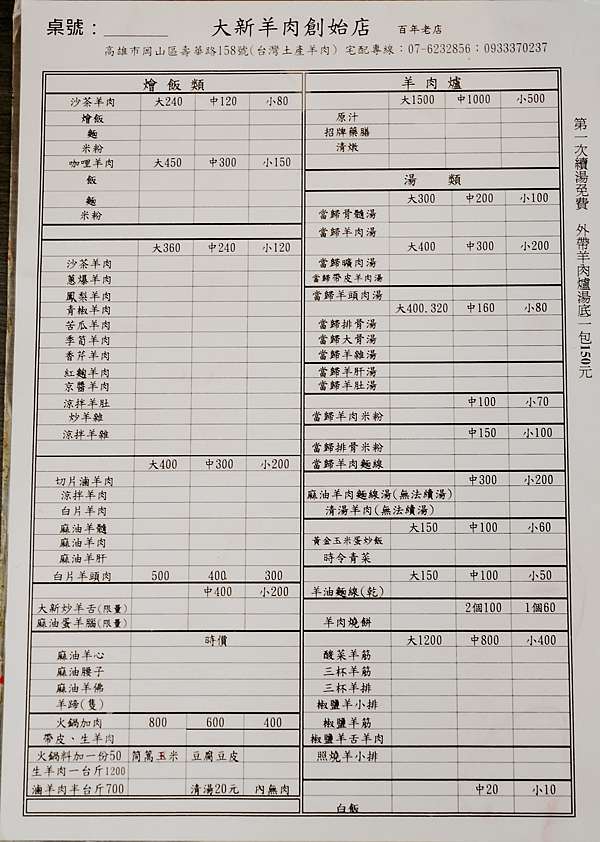 桌號：
大新羊肉創始店 百年老店
高雄市岡山區壽華路158號(台灣土產羊肉) 宅配專線：07-6232856；0933370237
燴飯類
沙茶羊肉 大240 中120 小80
燴飯
麵
米粉
咖哩羊肉 大450 中300 小150
飯
麵
米粉
大360 中240 小120
沙茶羊肉
蔥爆羊肉
鳳梨羊肉
青椒羊肉
苦瓜羊肉
季筍羊肉
香芹羊肉
紅麴羊肉
京醬羊肉
涼拌羊肚
炒羊雜
涼拌羊雜
大400 中300 小200
切片滷羊肉
涼拌羊肉
白片羊肉
麻油羊髓
麻油羊肉
麻油羊肝
白片羊頭肉 500 400 300
中400 小200
大新炒羊舌(限量)
麻油蛋羊腦(限量)
時價
麻油羊心
麻油腰子
麻油羊佛
羊蹄(隻)
火鍋加肉 800 600 400
帶皮、生羊肉
火鍋料加一份50 茼萵玉米 豆腐豆皮
生羊肉一台斤1200
滷羊肉半台斤700 清湯20元 內無肉
羊肉爐
大1500 中1000 小500
原汁
招牌藥膳
清燉
湯類
大300 中200 小100
當歸骨髓湯
當歸羊肉湯
大400 中300 小200
當歸礦肉湯
當歸帶皮羊肉湯
當歸羊頭肉湯
大400.320 中160 小80
當歸排骨湯
當歸大骨湯
當歸羊雜湯
當歸羊肝湯
當歸羊肚湯
中100 小70
當歸羊肉米粉
中150 小100
當歸排骨米粉
當歸羊肉麵線
中300 小200
麻油羊肉麵線湯(無法續湯)
清湯羊肉(無法續湯)
大150 中100 小60
黃金玉米蛋炒飯
時令青菜
大150 中100 小50
羊油麵線(乾)
2個100 1個60
羊肉燒餅
大1200 中800 小400
酸菜羊筋
三杯羊筋
三杯羊排
椒鹽羊小排
椒鹽羊筋
椒鹽羊舌羊肉
照燒羊小排
中20 小10
白飯
第一次續湯免費 外帶羊肉爐湯底一包150元